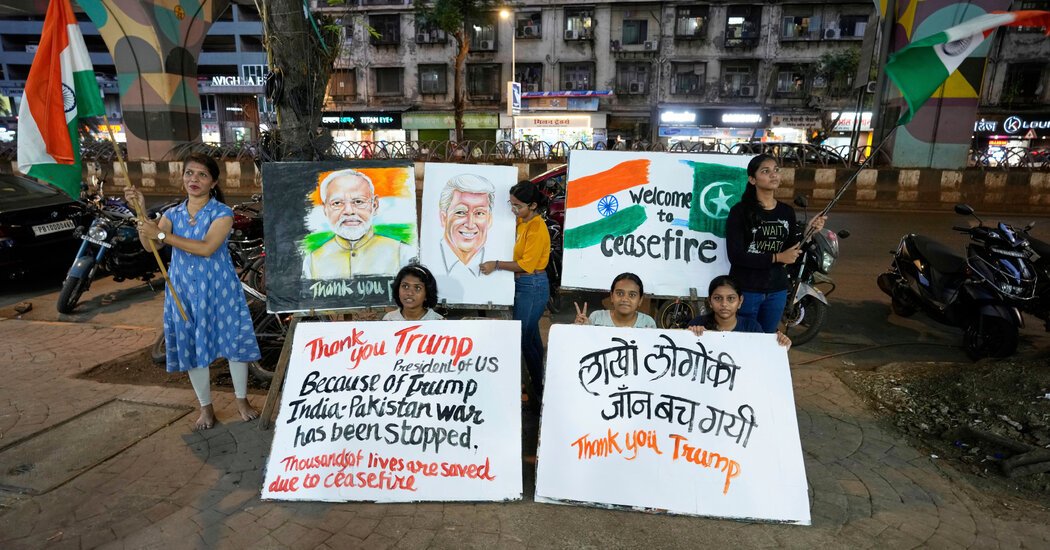 AVIGH
TITAN EYE+
K
Thank you P
Welcome
to
ceasefire
WAIT
WHAT
Thank you Trump
President of US
Because of Trump
India-Pakistan war
has been stopped.
Thousands of lives are saved
due to ceasefire
लाखों लोगोंकी
जाँन बच गयी
Thank you Trump